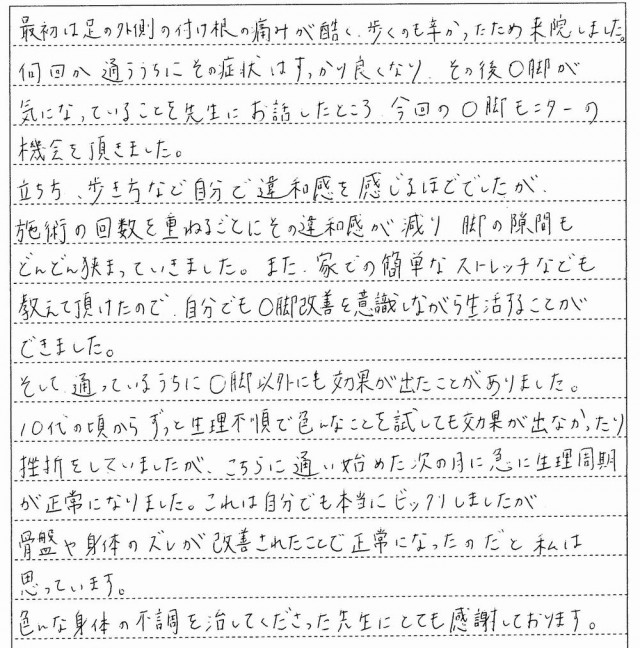 最初は足の外側の付け根の痛みが酷く、歩くのも辛かったため来院しました。
何回か通ううちにその症状はすっかり良くなり、その後〇脚が
気になっていることを先生にお話したところ、今回の〇脚モニターの
機会を頂きました。
立ち方、歩き方など自分で違和感を感じるほどでしたが、
施術の回数を重ねるごとにその違和感が減り 脚の隙間も
どんどん狭まっていきました。また、家での簡単なストレッチなども
教えて頂けたので、自分でも〇脚改善を意識しながら生活することが
できました。
そして、通っているうちに〇脚以外にも効果が出たことがありました。
10代の頃からずっと生理不順で色んなことを試しても効果が出なかったり
挫折をしていましたが、こちらに通い始めた次の月に急に生理周期
が正常になりました。これは自分でも本当にビックリしましたが
骨盤や身体のズレが改善されたことで正常になったのだと私は
思っています。
色んな身体の不調を治してくださった先生にとても感謝しております。